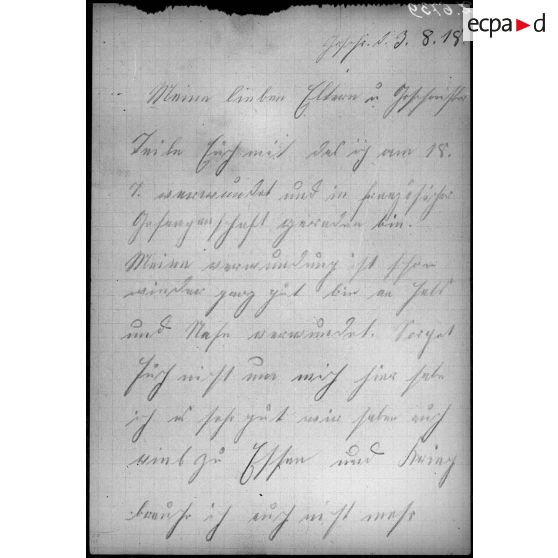 ecpad
6739
Geschr. d. 3. 8. 18.
Meine lieben Eltern u. Geschwister
Teile Euch mit das ich am 18.
7. verwundet und in französischer
Gefangenschaft geraden bin.
Meine verwundung ist schon
wieder ganz gut bin an Hals
und Nase verwundet. Sorget
Euch nicht um mich hier habe
ich es sehr gut wir haben auch
zu Essen und Krieg
brauch ich auch nicht mehr